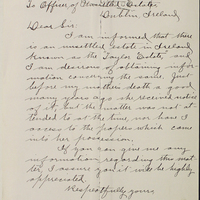 To Officer of Unsettled Estates,
Dublin Ireland
Dear Sir:
I am informed that there
is an unsettled estate in Ireland
known as the Taylor Estate, and
I am desirous of obtaining infor-
mation concerning the same. Just
before my mother's death a good
many years ago she received notice
of it, but the matter was not at-
tended to at the time nor have I
access to the papers which came
into her possession.
If you can give me any
information regarding the mat-
ter, I assure you it will be highly
appreciated.
Respectfully yours